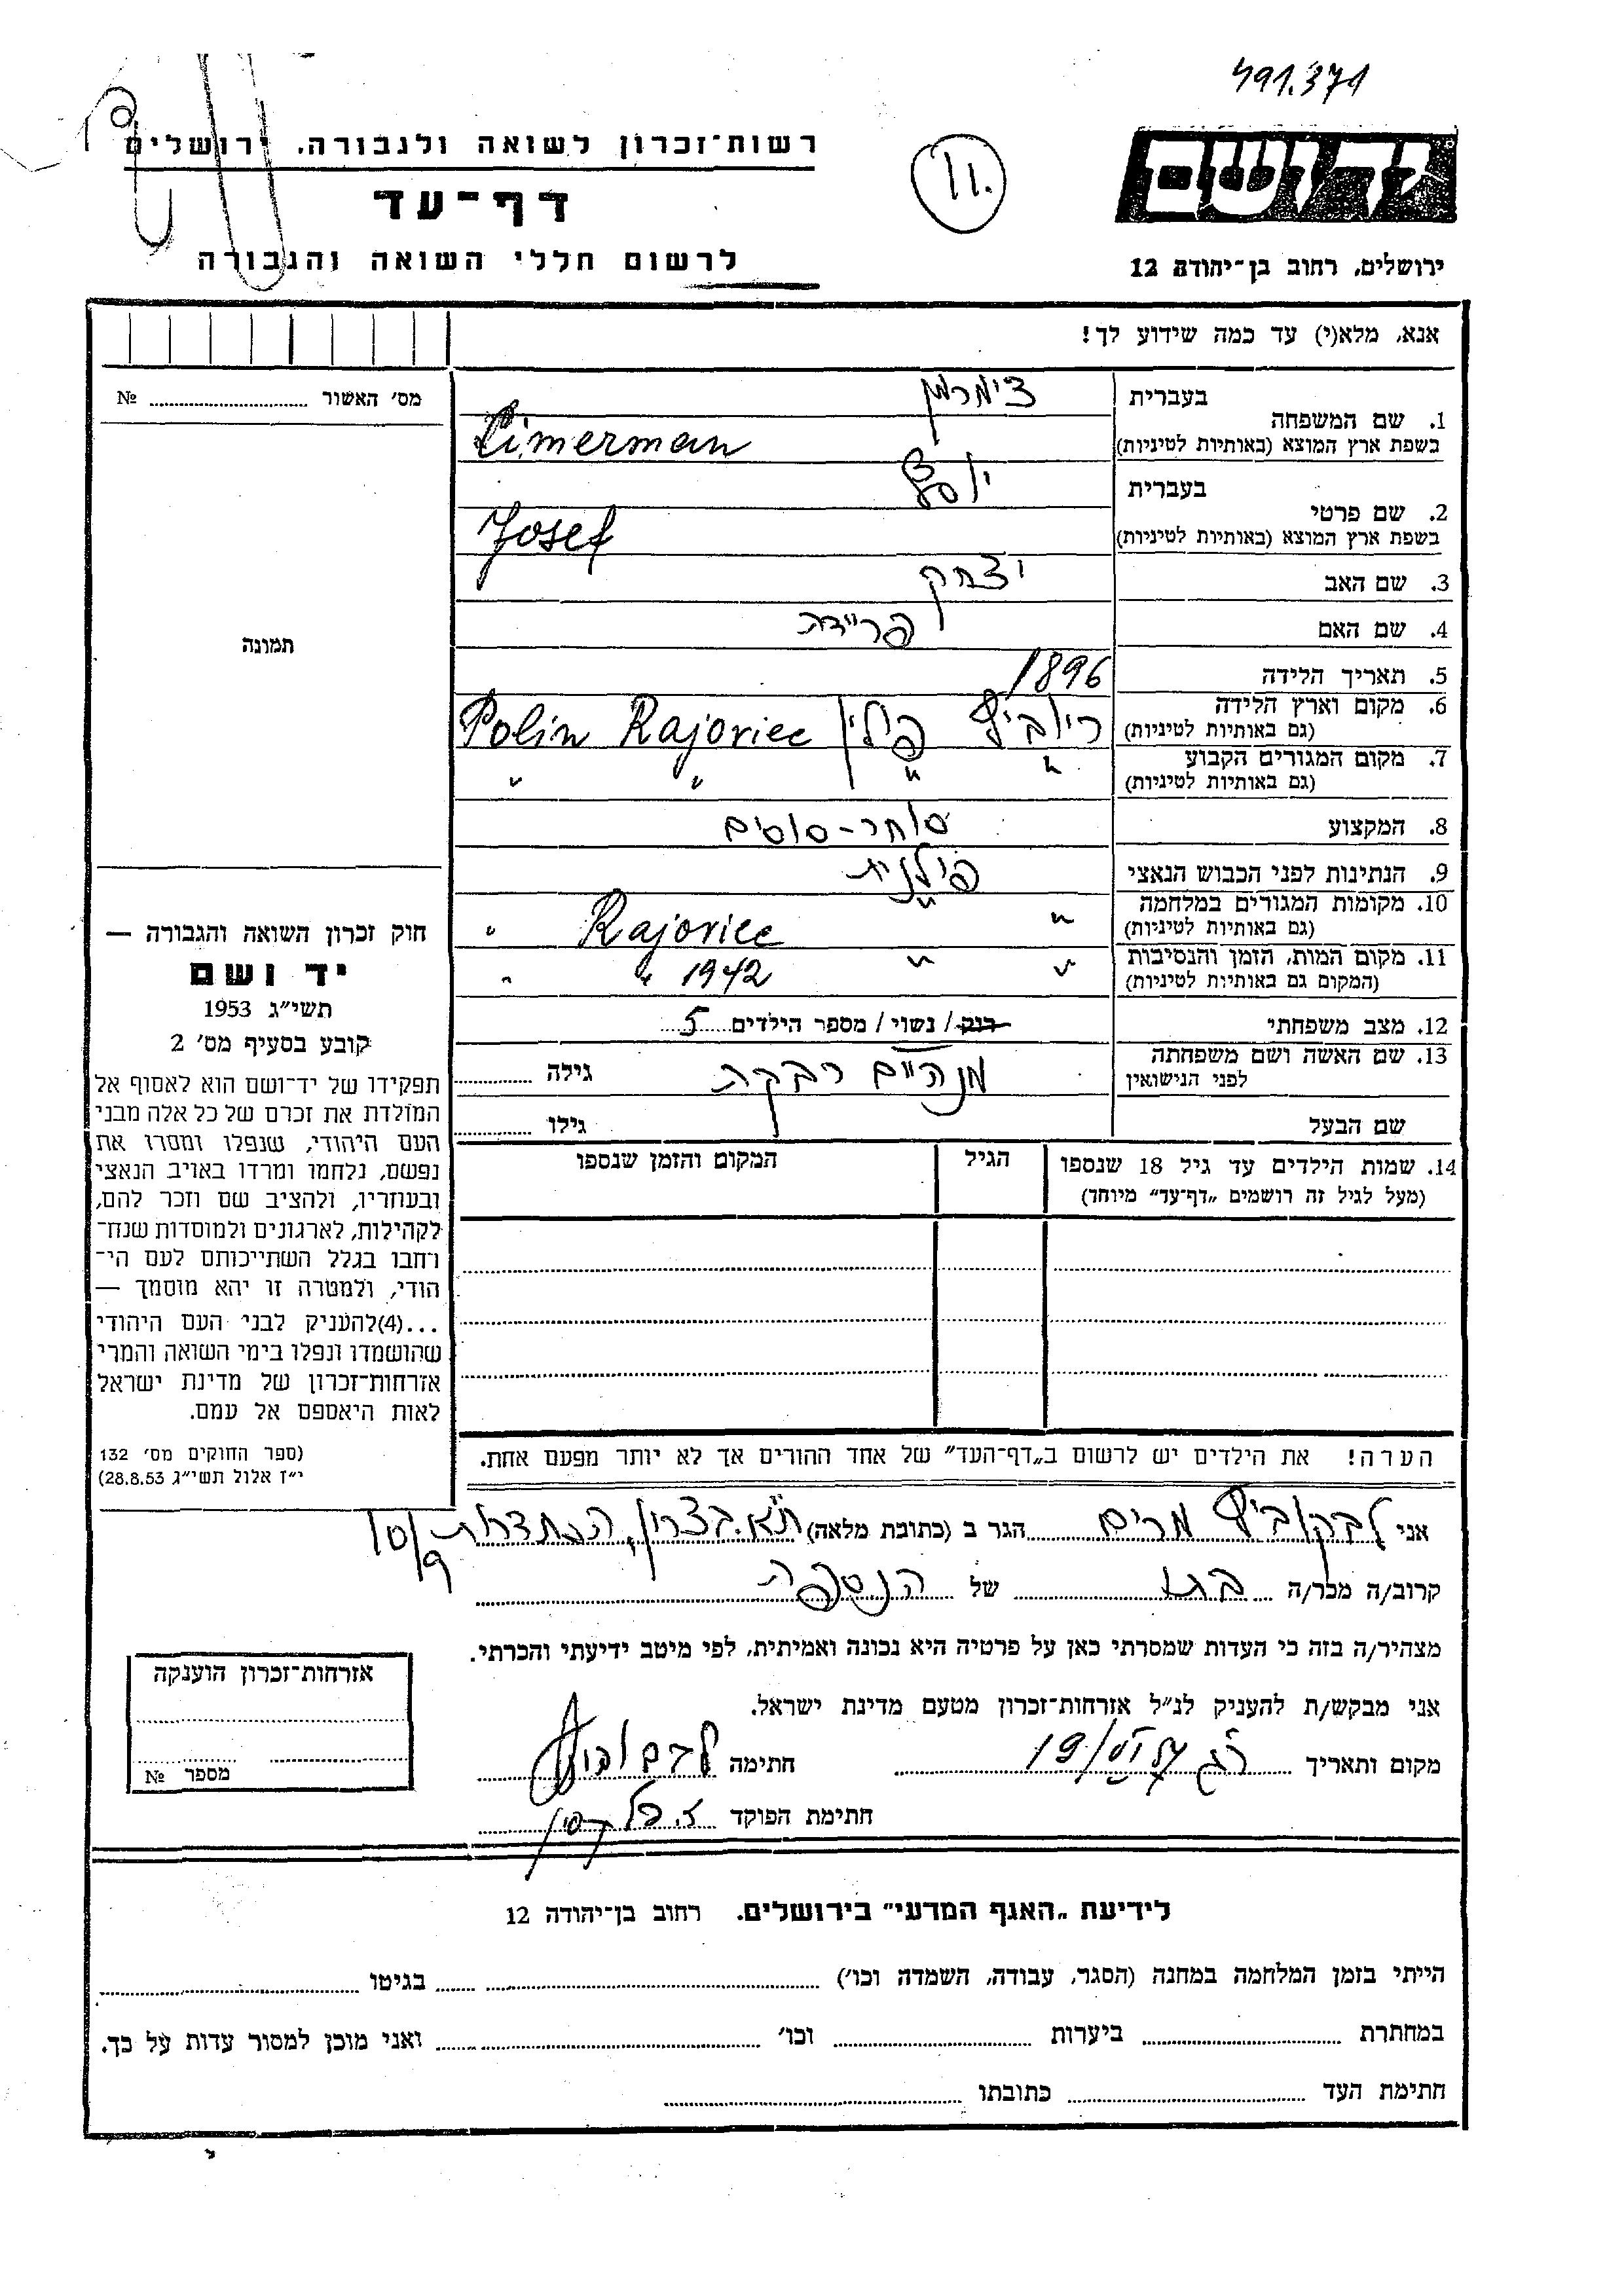 491.371
רשות־זכרון לשואה ולגבורה. ירושלים
11.
יד ושם
דף־עד
לרשום חללי השואה והגבורה
ירושלים, רחוב בן־יהודה 12
אנא, מלא(י) עד כמה שידוע לך!
מס׳ האשור № 
1. שם המשפחה
בעברית צימרמן
בשפת ארץ המוצא (באותיות לטיניות) Cimerman
2. שם פרטי
בעברית יוסף
בשפת ארץ המוצא (באותיות לטיניות) Josef
3. שם האב יצחק
4. שם האם פריידה
תמונה
5. תאריך הלידה 1896
6. מקום וארץ הלידה
(גם באותיות לטיניות) פולין Polin Rajoviec
7. מקום המגורים הקבוע
(גם באותיות לטיניות) " " " "
8. המקצוע סוחר-סוסים
9. הנתינות לפני הכבוש הנאצי פולנית
10. מקומות המגורים במלחמה
(גם באותיות לטיניות) " " Rajoviec "
11. מקום המות, הזמן והנסיבות
(המקום גם באותיות לטיניות) " " 1942 " "
12. מצב משפחתי רווק / נשוי / מספר הילדים 5
13. שם האשה ושם משפחתה
לפני הנישואין רבקה גילה
שם הבעל גילו
14. שמות הילדים עד גיל 18 שנספו
(מעל לגיל זה רושמים „דף־עד״ מיוחד)
הגיל
המקום והזמן שנספו
חוק זכרון השואה והגבורה —
יד ושם
תשי״ג 1953
קובע בסעיף מס׳ 2
תפקידו של יד־ושם הוא לאסוף אל
המולדת את זכרם של כל אלה מבני
העם היהודי, שנפלו ומסרו את
נפשם, נלחמו ומרדו באויב הנאצי
ובעוזריו, ולהציב שם וזכר להם,
לקהילות, לארגונים ולמוסדות שנח־
רחבו בגלל השתייכותם לעם הי־
הודי, ולמטרה זו יהא מוסמך —
...(4)להעניק לבני העם היהודי
שהושמדו ונפלו בימי השואה והמרי
אזרחות־זכרון של מדינת ישראל
לאות היאספם אל עמם.
(ספר החוקים מס׳ 132
י״ז אלול תשי״ג 28.8.53)
הערה! את הילדים יש לרשום ב„דף־העד״ של אחד ההורים אך לא יותר מפעם אחת.
אני לבקוביץ מרים הגר ב (כתובת מלאה) ת"א. בצרון, ההסתדרות
קרוב/ה מכר/ה בתו של הנספה
מצהיר/ה בזה כי העדות שמסרתי כאן על פרטיה היא נכונה ואמיתית, לפי מיטב ידיעתי והכרתי.
אני מבקש/ת להעניק לנ״ל אזרחות־זכרון מטעם מדינת ישראל.
מקום ותאריך חתימה
חתימת הפוקד
אזרחות־זכרון הוענקה
מספר №
לידיעת „האגף המדעי״ בירושלים. רחוב בן־יהודה 12
הייתי בזמן המלחמה במחנה (הסגר, עבודה, השמדה וכו׳) בגיטו
במחתרת ביערות וכו׳ ואני מוכן למסור עדות על כך.
חתימת העד כתובתו